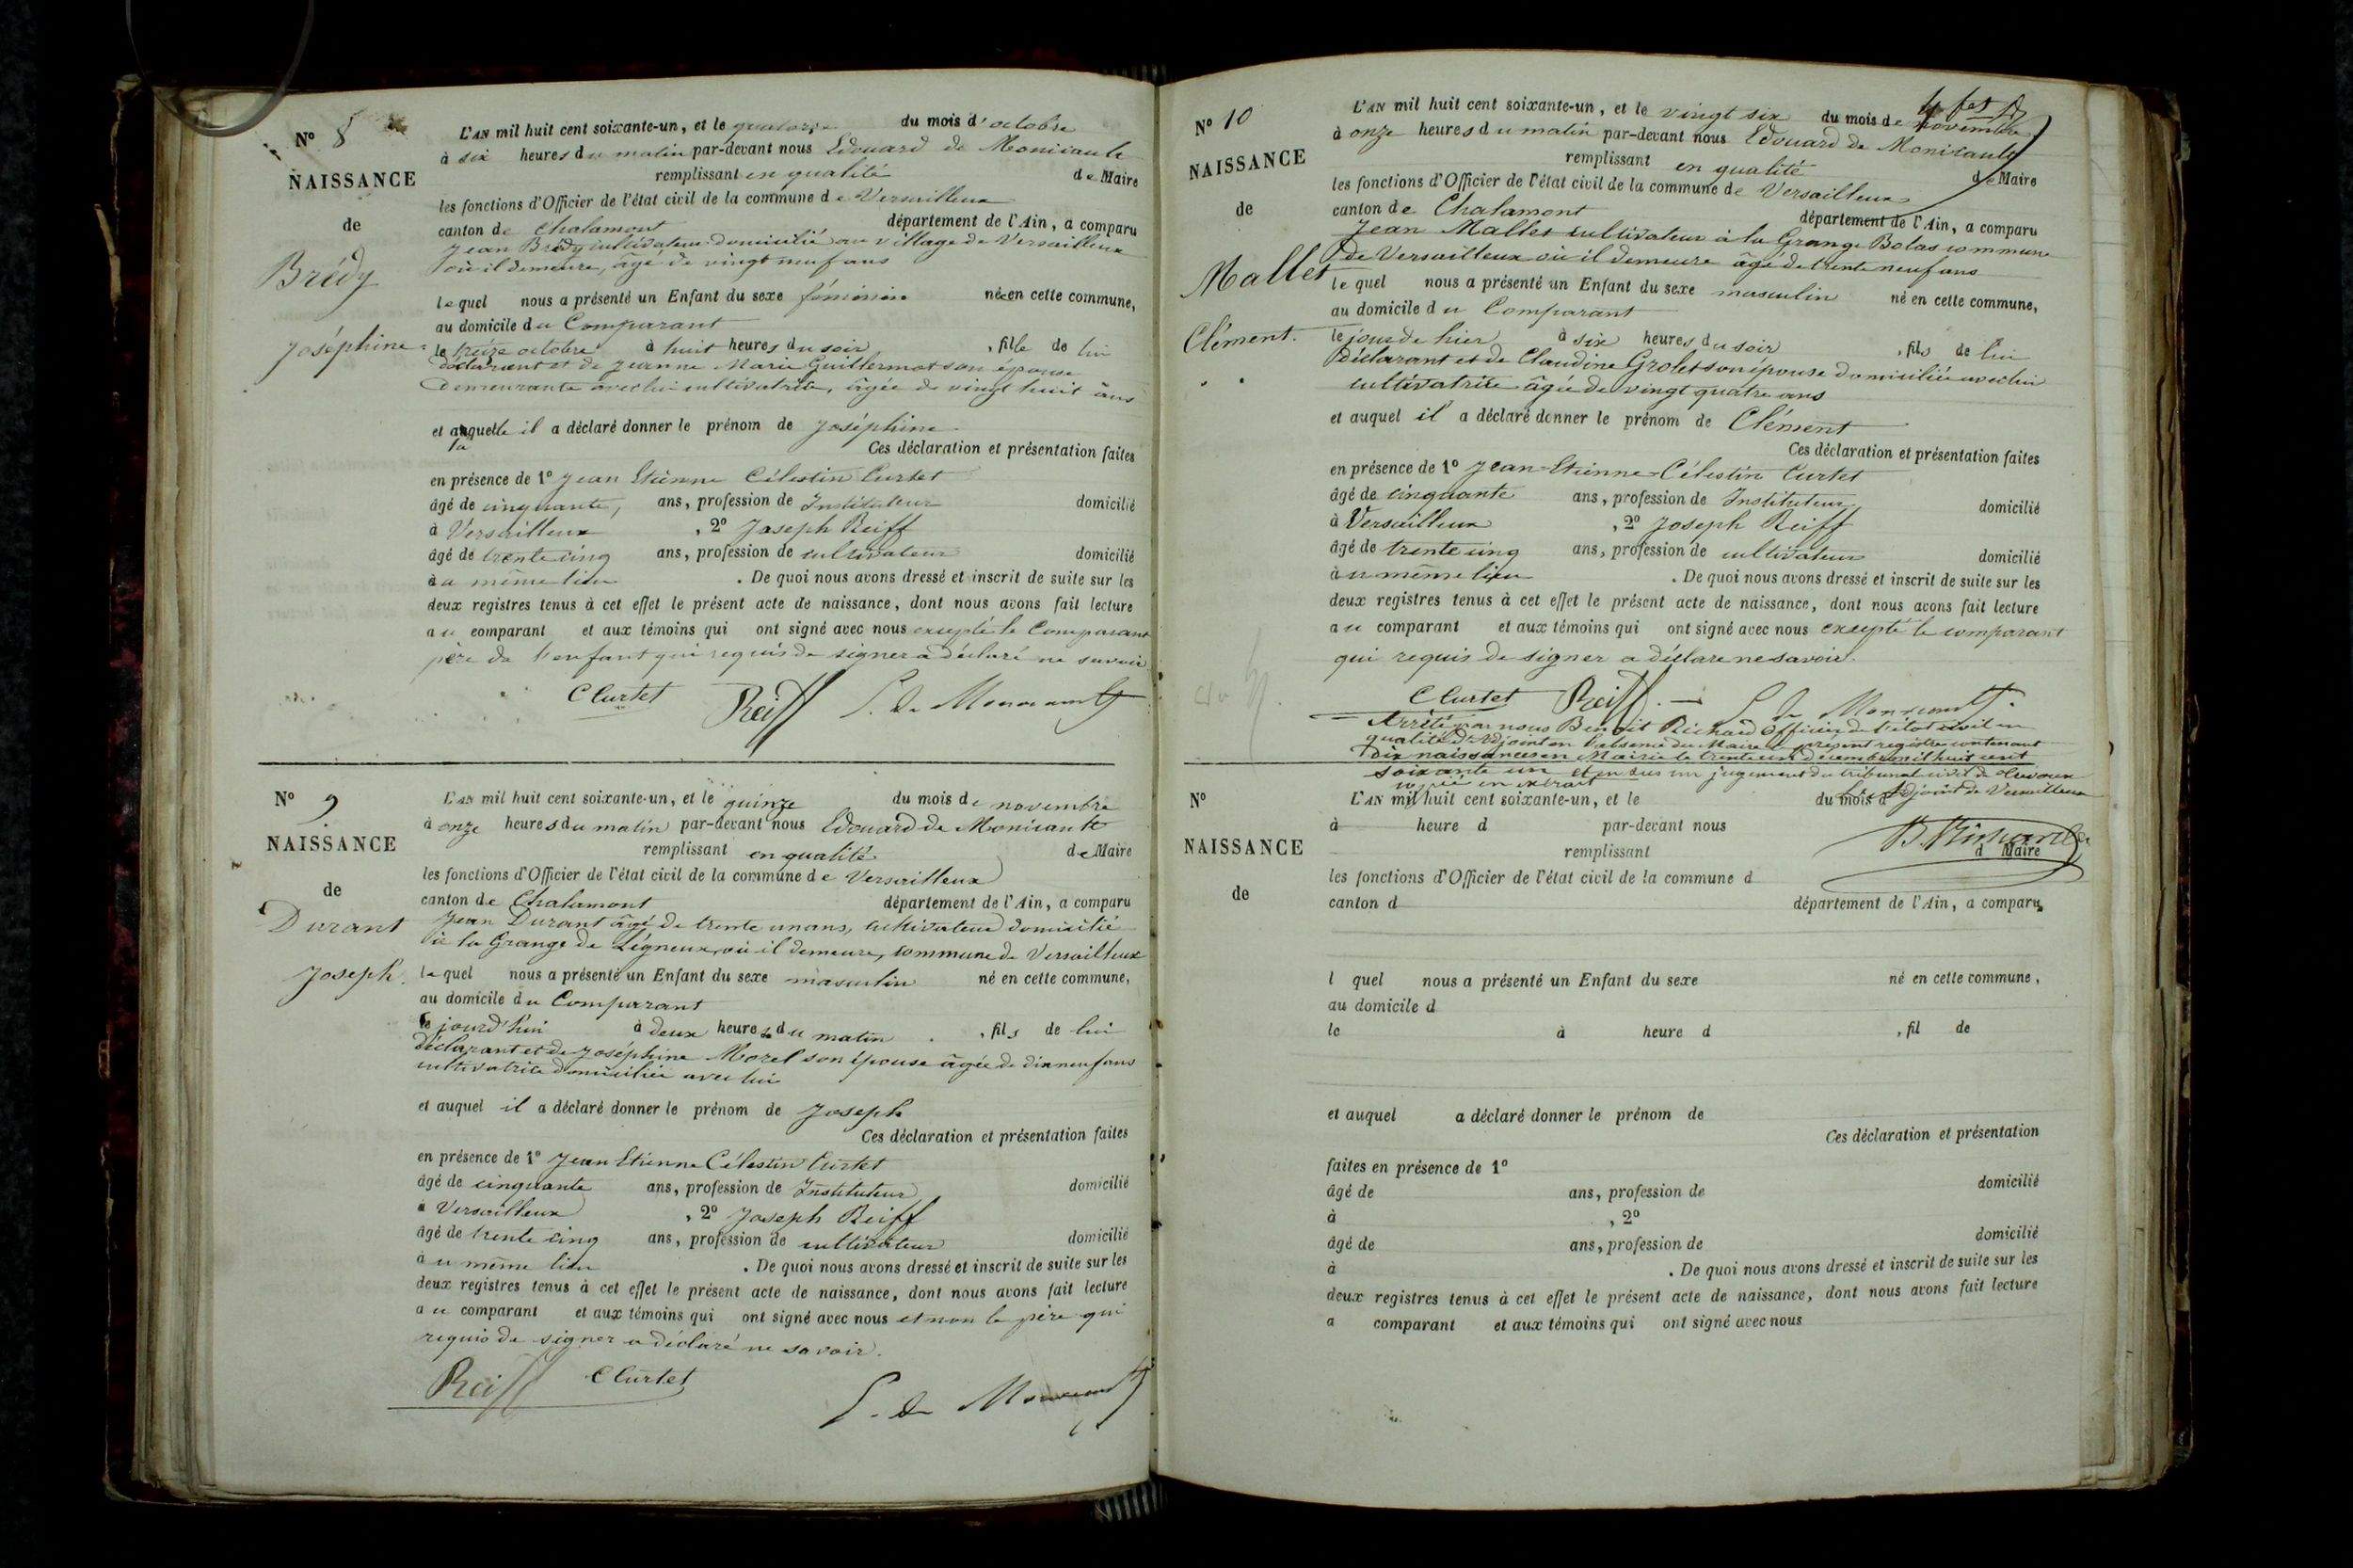 N° 8
NAISSANCE
de
Brédy
Joséphine
L'AN mil huit cent soixante-un, et le quatorze du mois d'octobre
à six heures du matin par-devant nous Edouard de Monicault
remplissant en qualité de Maire
les fonctions d'Officier de l'état civil de la commune de Versailleux
canton de Chalamont département de l'Ain, a comparu
Jean Brédy cultivateur domicilié au village de Versailleux
où il demeure, âgé de vingt neuf ans
lequel nous a présenté un Enfant du sexe féminin née en cette commune,
au domicile du Comparant
le treize octobre à huit heures du soir, fille de lui
déclarant et de Jeanne Marie Guillermot son épouse
demeurante avec lui cultivatrice, âgée de vingt huit ans
et a laquelle il a déclaré donner le prénom de Joséphine
Ces déclaration et présentation faites
en présence de 1° Jean Etienne Célestin Curtet
âgé de cinquante, ans, profession de Instituteur domicilié
à Versailleux, 2° Joseph Reiff
âgé de trente cinq ans, profession de cultivateur domicilié
au même lieu. De quoi nous avons dressé et inscrit de suite sur les
deux registres tenus à cet effet le présent acte de naissance, dont nous avons fait lecture
au comparant et aux témoins qui ont signé avec nous excepté le Comparant
père de l'enfant qui requis de signer a déclaré ne savoir
C Curtet Reiff E. de Monicault
N° 9
NAISSANCE
de
Durant
Joseph.
L'AN mil huit cent soixante-un, et le quinze du mois de novembre
à onze heures du matin par-devant nous Edouard de Monicault
remplissant en qualité de Maire
les fonctions d'Officier de l'état civil de la commune de Versailleux
canton de Chalamont département de l'Ain, a comparu
Jean Durant âgé de trente un ans, cultivateur domicilié
à la Grange de Légneux, où il demeure, commune de Versailleux
lequel nous a présenté un Enfant du sexe masculin né en cette commune,
au domicile du Comparant
ce jourd'hui à deux heures du matin, fils de lui
déclarant et de Joséphine Morel son épouse âgée de dix neuf ans
cultivatrice domiciliée avec lui
et auquel il a déclaré donner le prénom de Joseph
Ces déclaration et présentation faites
en présence de 1° Jean Etienne Célestin Curtet
âgé de cinquante ans, profession de Instituteur domicilié
à Versailleux, 2° Joseph Reiff
âgé de trente cinq ans, profession de cultivateur domicilié
au même lieu. De quoi nous avons dressé et inscrit de suite sur les
deux registres tenus à cet effet le présent acte de naissance, dont nous avons fait lecture
au comparant et aux témoins qui ont signé avec nous et non le père qui
requis de signer a déclaré ne savoir.
Reiff C Curtet E. de Monicault
N° 10
NAISSANCE
de
Mallet
Clément.
L'AN mil huit cent soixante-un, et le vingt six du mois de novembre
à onze heures du matin par-devant nous Edouard de Monicault
remplissant en qualité de Maire
les fonctions d'Officier de l'état civil de la commune de Versailleux
canton de Chalamont département de l'Ain, a comparu
Jean Mallet cultivateur à la Grange Bolas commune
de Versailleux où il demeure âgé de trente neuf ans
lequel nous a présenté un Enfant du sexe masculin né en cette commune,
au domicile du Comparant
le jour de hier à six heures du soir, fils de lui
déclarant et de Claudine Grolet son épouse domiciliée avec lui
cultivatrice âgée de vingt quatre ans
et auquel il a déclaré donner le prénom de Clément
Ces déclaration et présentation faites
en présence de 1° Jean-Etienne-Célestin Curtet
âgé de cinquante ans, profession de Instituteur domicilié
à Versailleux, 2° Joseph Reiff
âgé de trente cinq ans, profession de cultivateur domicilié
au même lieu. De quoi nous avons dressé et inscrit de suite sur les
deux registres tenus à cet effet le présent acte de naissance, dont nous avons fait lecture
au comparant et aux témoins qui ont signé avec nous excepté le comparant
qui requis de signer a déclare ne savoir.
C Curtet Reiff. E. de Monicault.
Arrêté par nous Benoit Richard Officier de l'état civil en
qualité d'adjoint en l'absence du Maire le présent registre contenant
dix naissances en Mairie le trente un décembre mil huit cent
soixante un et en sus un jugement du tribunal civil de Trévoux
copié en extrait
L'Adjoint de Versailleux
B. Richard
N°
NAISSANCE
de
L'AN mil huit cent soixante-un, et le du mois d
à heure d par-devant nous
remplissant d Maire
les fonctions d'Officier de l'état civil de la commune d
canton d département de l'Ain, a comparu
l quel nous a présenté un Enfant du sexe né en cette commune,
au domicile d
le à heure d, fil de
et auquel a déclaré donner le prénom de
Ces déclaration et présentation
faites en présence de 1°
âgé de ans, profession de domicilié
à, 2°
âgé de ans, profession de domicilié
à. De quoi nous avons dressé et inscrit de suite sur les
deux registres tenus à cet effet le présent acte de naissance, dont nous avons fait lecture
a comparant et aux témoins qui ont signé avec nous